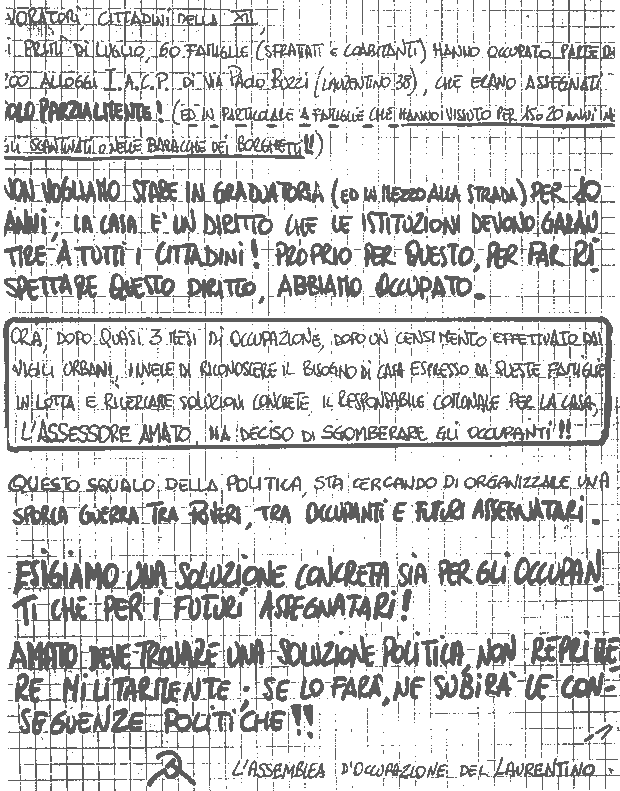 VORATORI, CITTADINI DELLA XII,
I PRIMI DI LUGLIO, 60 FAMIGLIE (SFRATATI E COABITANTI) HANNO OCCUPATO PARTE DI
200 ALLOGGI I.A.C.P. DI VIA PAOLO BUZZI (LAURENTINO 38), CHE ERANO ASSEGNATI
OLO PARZIALMENTE! (ED IN PARTICOLARE A FAMIGLIE CHE HANNO VISSUTO PER 15 O 20 ANNI NE
GLI SCANTINATI O NELLE BARACCHE DEI BORGHETTI!!)
NON VOGLIAMO STARE IN GRADUATORIA (ED IN MEZZO ALLA STRADA) PER 20
ANNI; LA CASA E' UN DIRITTO CHE LE ISTITUZIONI DEVONO GARAN
TIRE A TUTTI I CITTADINI! PROPRIO PER QUESTO, PER FAR RI-
SPETTARE QUESTO DIRITTO, ABBIAMO OCCUPATO.
ORA, DOPO QUASI 3 MESI DI OCCUPAZIONE, DOPO UN CENSIMENTO EFFETTUATO DAI
VIGILI URBANI, INVECE DI RICONOSCERE IL BISOGNO DI CASA ESPRESSO DA QUESTE FAMIGLIE
IN LOTTA E RICERCARE SOLUZIONI CONCRETE IL RESPONSABILE COMUNALE PER LA CASA,
L'ASSESSORE AMATO, HA DECISO DI SGOMBERARE GLI OCCUPANTI!!
QUESTO SQUALO DELLA POLITICA, STA CERCANDO DI ORGANIZZARE UNA
SPORCA GUERRA TRA POVERI, TRA OCCUPANTI E FUTURI ASSEGNATARI.
ESIGIAMO UNA SOLUZIONE CONCRETA SIA PER GLI OCCUPAN
TI CHE PER I FUTURI ASSEGNATARI!
AMATO DEVE TROVARE UNA SOLUZIONE POLITICA, NON REPRIME
RE MILITARMENTE; SE LO FARÀ, NE SUBIRÀ LE CON-
SEGUENZE POLITICHE!!
L'ASSEMBLEA D'OCCUPAZIONE DEL LAURENTINO.